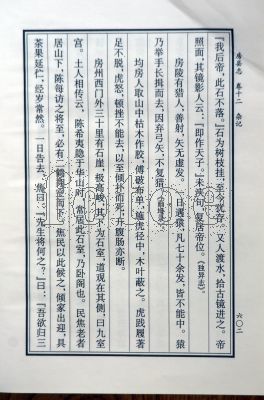 房县志 卷十二 杂记
六〇二
“我后帝,此石不落。”石为树枝挂,至今犹存。又人渡水,拾古镜进之。帝
照面,其镜影人云:“即作天子。”未浃旬,复居帝位。(《独异志》)。
房陵有猎人,善射,矢无虚发。一日遇猿,凡七十余发,皆不能中。猿
乃举手长揖而去,因弃弓矢,不复猎。
均房人取山中枯木作胶,傅破布单,施虎径中,木叶蔽之。虎践履着
足不脱,虎怒,顿挫不能去,以至倾扑而死,开腹肠亦断。
房州西门外三十里有石崖,极高峻,其下为石室,道观在其侧,曰九室
宫。土人相传云,陈希夷隐于华山时,常居此石室,乃卧阁也。民焦老者
居山下,陈每访之将至,必有
焦民以此候之,倾家出迎,具
茶果延伫,经岁常然。一日告去。焦曰:“先生将何之?”曰:“吾欲归三